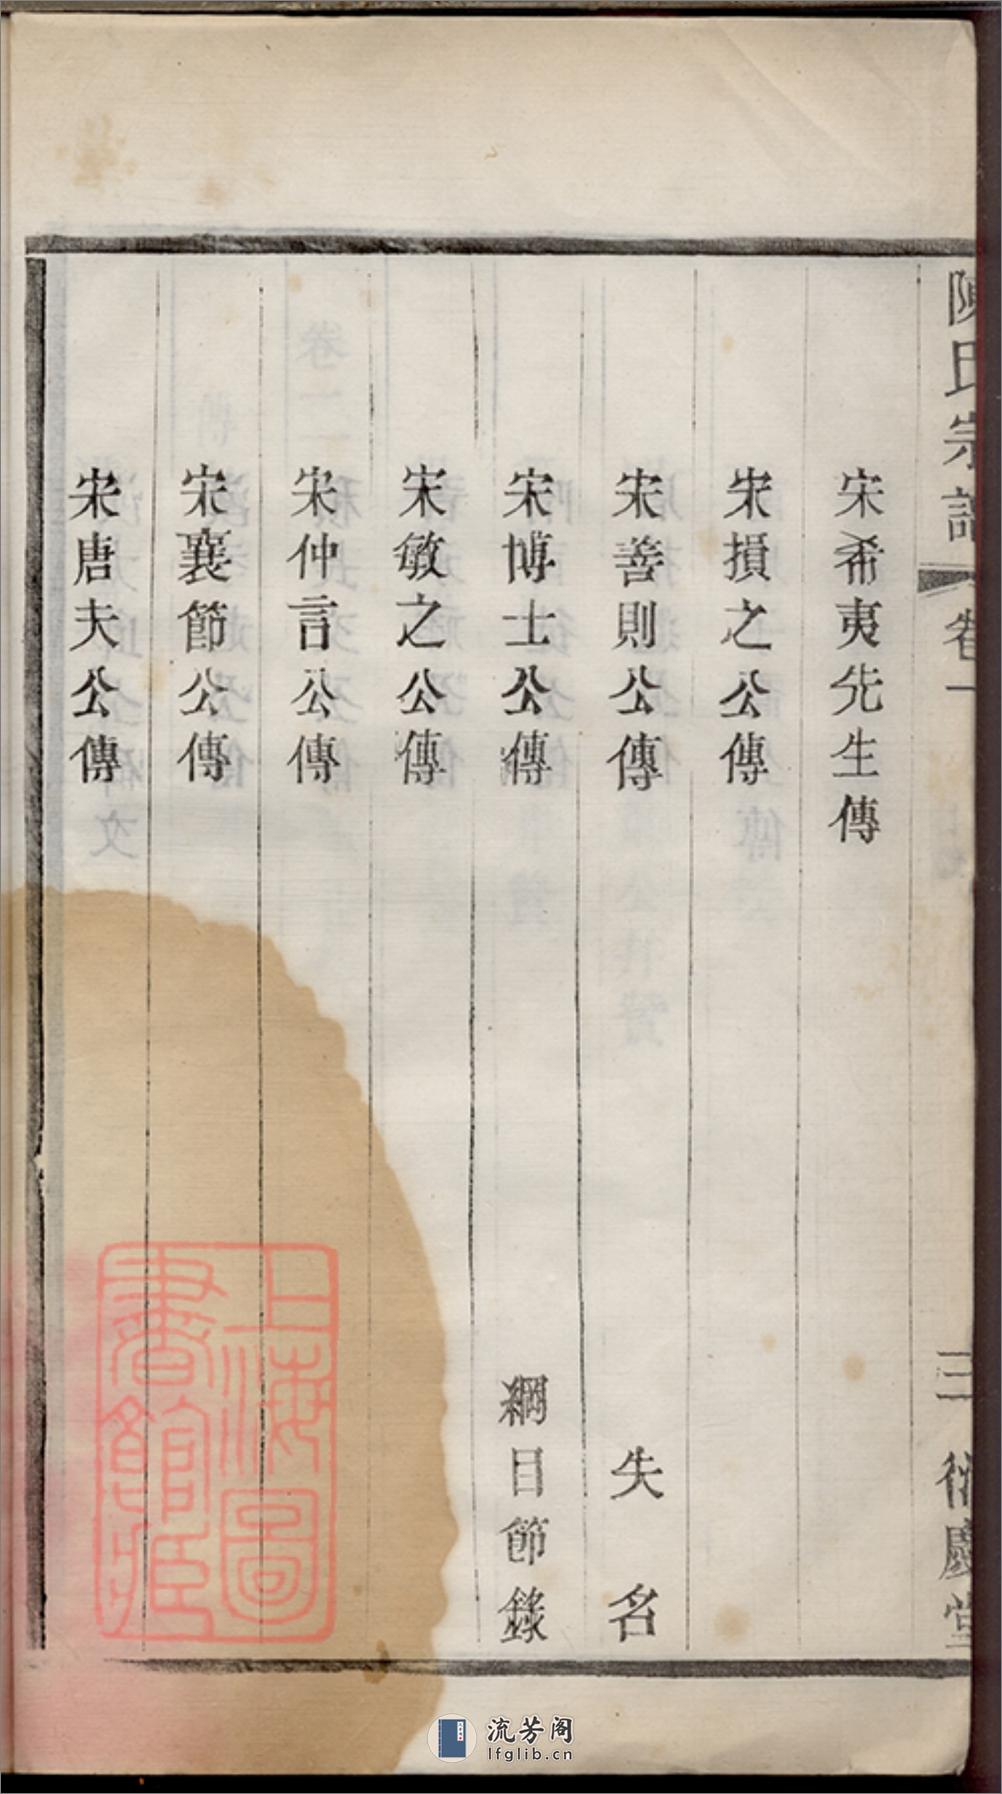 陳氏宗譜
卷一
三
衍慶堂
宋希夷先生傳
宋損之公傳
宋善則公傳 失名
宋博士公傳 綱目節錄
宋敏之公傳
宋仲言公傳
宋襄節公傳
宋唐夫公傳
上海圖書館藏
流芳阁
lfglib.cn